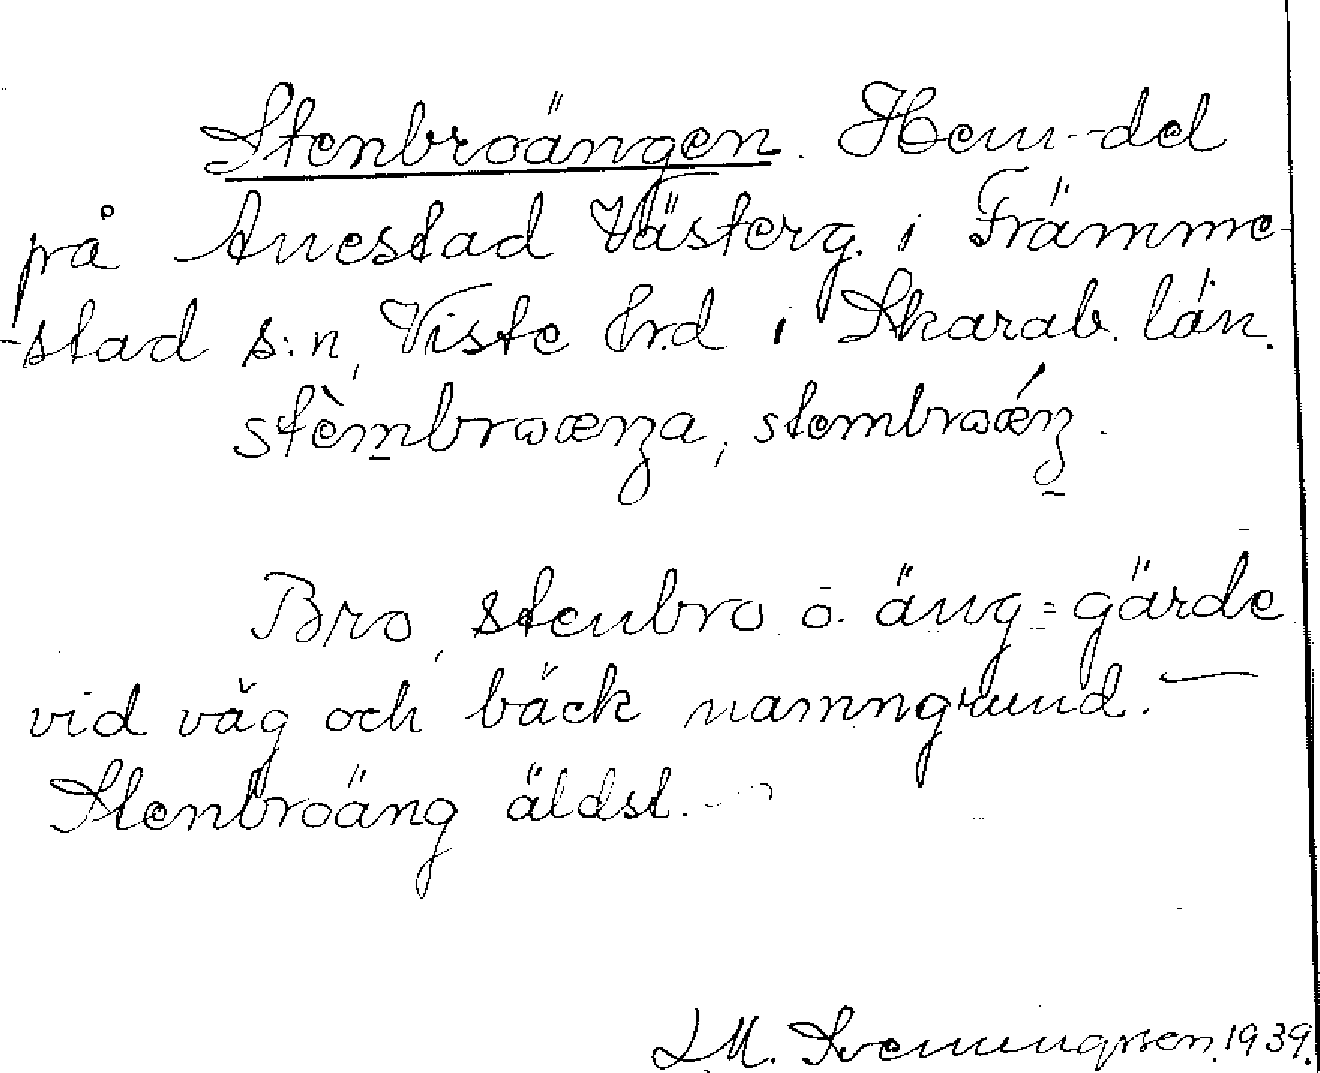 Stenbroängen. Hem-del
på Anestad Västerg. i Främme-
-stad s:n, Viste hrd i Skarab. län.
stèmbroæŋa, stembroǽŋ.
Bro, stenbro o. äng=gärde
vid väg och bäck namngrund. —
Stenbroäng äldst. —
L.M. Svenungsson. 1939.